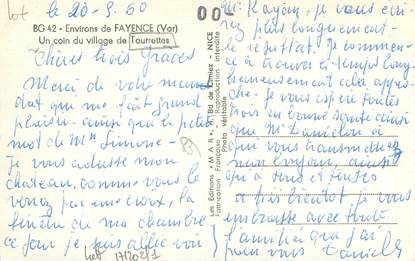 le 20-9-60
BG 42 - Environs de FAYENCE (Var)
Un coin du village de Tourrettes
Chères trois Grâces
Merci de votre mandat qui me fait grand
plaisir ainsi que le petit
mot de Mme Simone.
Je vous adresse mon
château, comme vous le
voyez par une croix, la
fenêtre de ma chambre
ce jour je suis allée voir
17120
Les Editions "MAR", Bd de Cimiez - NICE
Fabrication Française - Reproduction interdite
Photo véritable
00
Mr Rayon, je vous écri
plus longuement
le résultat. Je commen
ce à trouver le temps long
heureusement cela appro
che. Je vous espère toutes
en bonne santé ainsi
que Mr Danielou à
qui vous transmettrez
mon bonjour, ainsi
qu'à vous toutes
à bientôt je vous
embrasse avec toute
l'amitié que j'ai
pour vous Daniele